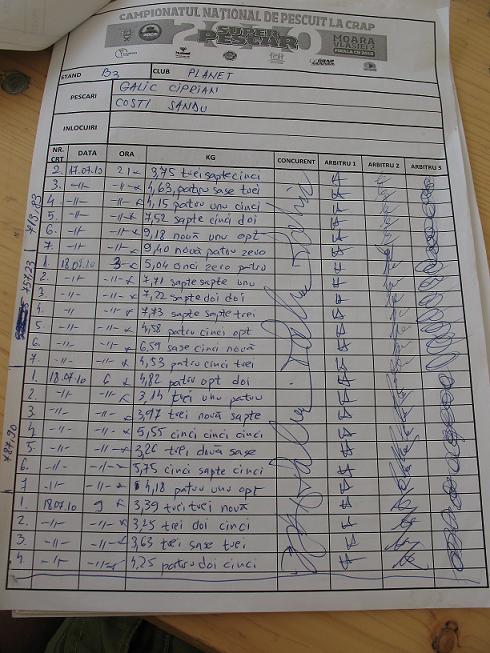 CAMPIONATUL NAȚIONAL DE PESCUIT LA CRAP
SUPER PESCAR
MOARA VLASIEI 2
FINALA CN 2010
STAND B3 CLUB PLANET
PESCARI GALIC CIPRIAN
COSTI SANDU
INLOCUIRI
NR. CRT DATA ORA KG CONCURENT ARBITRU 1 ARBITRU 2 ARBITRU 3
2. 17.07.10 21 3,75 trei sapte cinci
3. -11- -11- 4,63 patru sase trei
4. -11- -11- 4,15 patru unu cinci
5. -11- -11- 7,52 sapte cinci doi
6. -11- -11- 9,18 nouă unu opt
7. -11- -11- 9,40 nouă patru zero
1. 18.07.10 3 5,04 cinci zero patru
2. -11- -11- 7,71 sapte sapte unu
3. -11- -11- 7,22 sapte doi doi
4. -11- -11- 7,73 sapte sapte trei
5. -11- -11- 4,58 patru cinci opt
6. -11- -11- 6,59 sase cinci nouă
7. -11- -11- 4,53 patru cinci trei
1. 18.07.10 6 4,82 patru opt doi
2. -11- -11- 3,14 trei unu patru
3. -11- -11- 3,97 trei nouă sapte
4. -11- -11- 5,55 cinci cinci cinci
5. -11- -11- 3,26 trei două sase
6. -11- -11- 5,75 cinci sapte cinci
7 -11- -11- 4,18 patru unu opt
1. 18.07.10 9 3,39 trei trei nouă
2. -11- -11- 3,25 trei doi cinci
3. -11- -11- 3,63 trei sase trei
4. -11- -11- 4,25 patru doi cinci